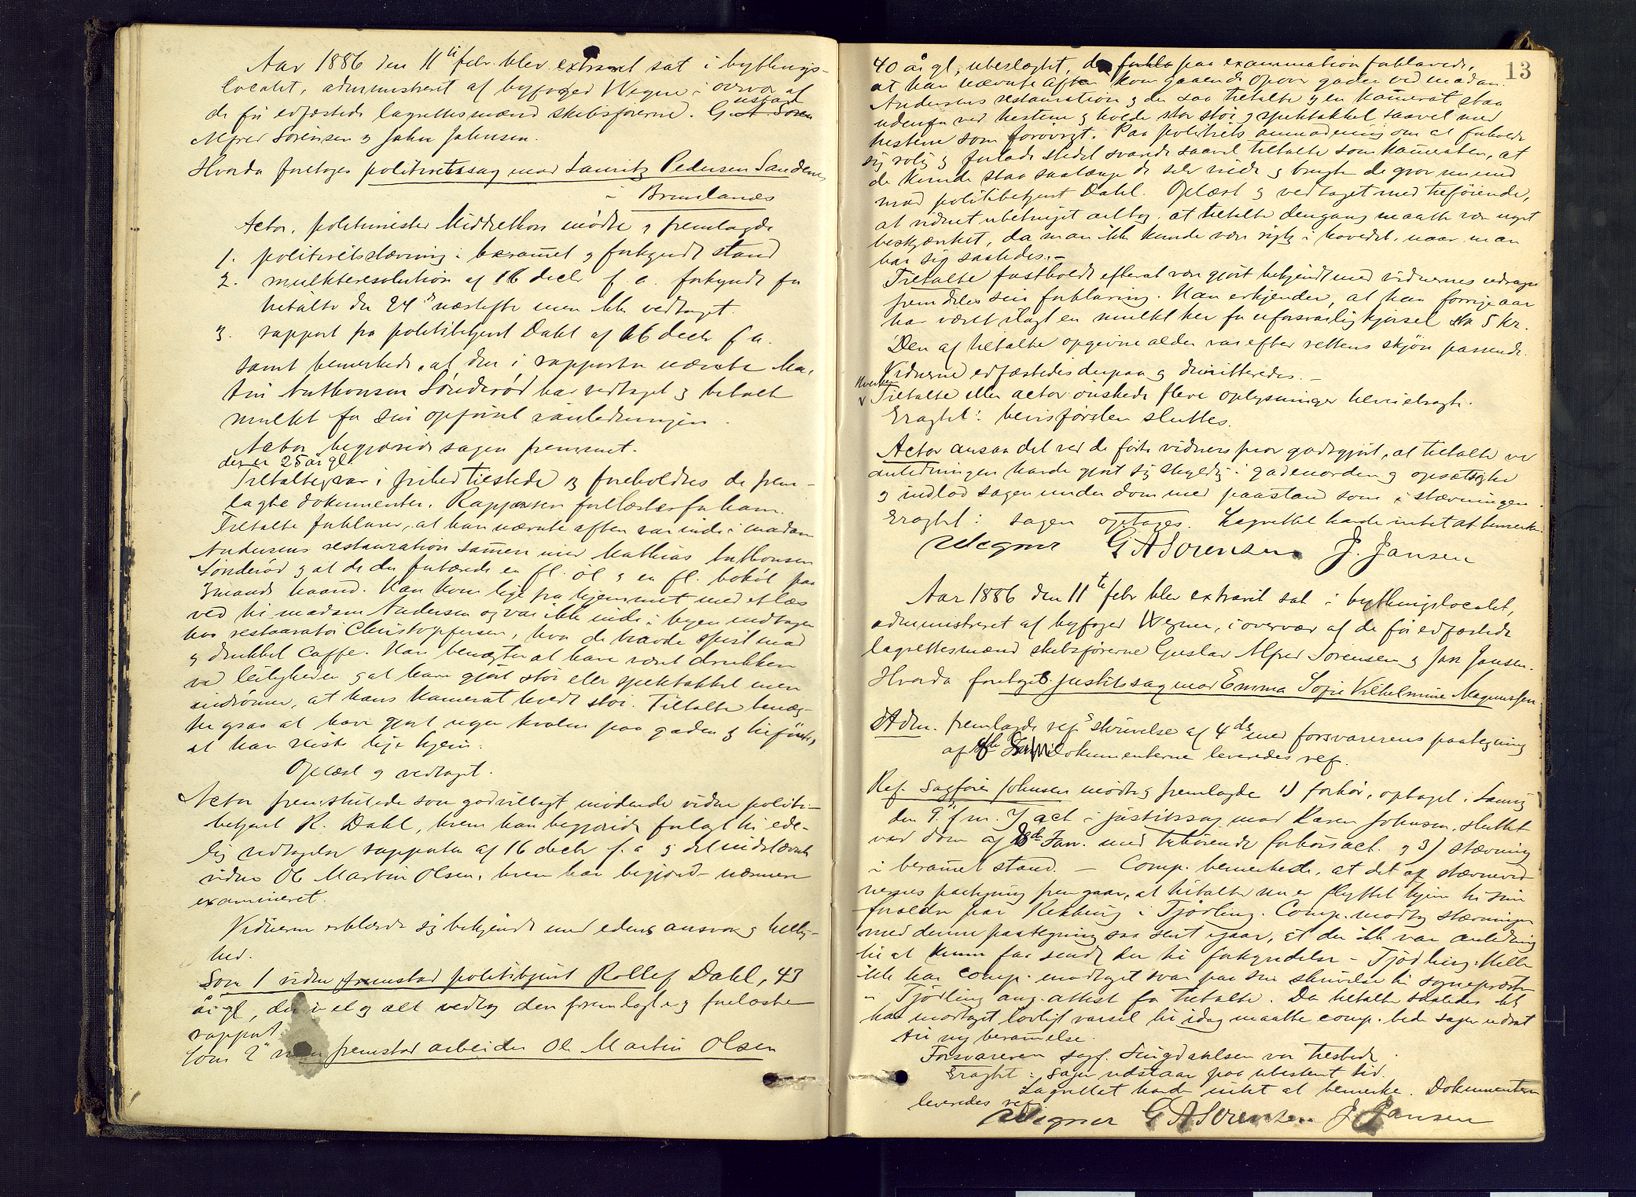 Aar 1886 den 11te febr. blev extraret sat i bythings-
localet, administreret af byfoged Wegner i overvær af
de før edfæstede lagrettesmænd skibsførerne. Gustav
Alfred Sørensen og John Johnsen.
Hvorda foretoges politiretssag mod Lauritz Pedersen Sandenes
i Brunlanæs
Actor, politimester Middelthon mødte og fremlagde
1. politiretsstævning i berammet og forkyndt stand
2. mulkteresolution af 16 decbr f. a. forkyndt for
tiltalte den 24de næstefter men ikke vedtaget.
3. rapport fra politibetjent Dahl af 16 decbr f. a.
samt bemærkede, at den i rapporten nævnte Ma-
thias Anthonsen Sønderød har vedtaget og betalt
mulkt for sin opførsel i anledningen.
Actor begjærede sagen fremmet.
der er 25 år gl.
Tiltalte var i frihed tilstede og foreholdtes de frem-
lagte dokumenter. Rapporten forlæstes for ham.
Tiltalte forklarer, at han nævnte aften var inde i madam
Andersens restauration sammen med Mathias Anthonsen
Sønderød og at de der fortærede en fl. øl og en fl. bokøl paa
2mands haand. Han kom lige fra hjemmet med et læs
ved til madam Andersen og var ikke inde i byen undtagen
hos restauratør Christophersen, hvor de havde spist mad
og drukket caffe. Han benægter at have været drukken
ved leiligheden og at have gjort støi eller spektakkel men
indrømmer, at hans kamerat hvedt støi. Tiltalte benæg-
tegsaa at have gjort nogen kvalm paa gaden og tilføiede,
at han reiste lige hjem.
Oplæst og vedtaget.
Actor fremstillede som godvilligt mødende vidne politi-
betjent R. Dahl, hvem han begjærede forelagt til ede-
lig vedtagelse rapporten af 16 decbr f. a. og det indstævnte
vidne Ole Martin Olsen, hvem han begjærede nærmere
examineret.
Vidnerne erklærede sig bekjendt med edens ansvar og hellig-
hed.
Som 1 vidne fremstod politibetjent Rollef Dahl, 43
år gl, der i et og alt vedtog den fremlagte og forelæste
rapport.
Som 2det vidne fremstod arbeider Ole Martin Olsen
13
40 år gl, ubeslægtet, der paa examination forklarede,
at han nævnte aften kom gaaende opover gaden ved madam
Andersens restauration og der saa tiltalte og en kamerat staa
udenfor ved hestene og holde stor støi og spektakkel saavel med
hestene som forøvrigt. Paa politiets anmodning om at forholde
sig rolig og forlade stedet svarede saavel tiltalte som kameraten, at
de kunde staa saalænge de selv vilde og brugte de grov mund
mod politibetjent Dahl. Oplæst og vedtaget med tilføiende,
at vidnet ubetinget antog, at tiltalte dengang maatte være noget
beskjænket, da man ikke kunde være rigtig i hovedet, naar man
bar sig saaledes. –
Tiltalte fastholdt efterat være gjort bekjendt med vidnernes udsagn
fremdeles sin forklaring. Han erkjender, at han forrige aar
har været ilagt en mulkt her for uforsvarlig kjørsel stor 5 kr.
Den af tiltalte opgivne alder var efter rettens skjøn passende.
Vidnerne edfæstedes derpaa og dimitteredes. –
Hverken
Tiltalte eller actor ønskede flere oplysninger tilveiebragt.
Eragtet: bevisførslen sluttes.
Actor ansaa det ved de førte vidners prov godtgjort, at tiltalte ved
anledningen havde gjort sig skyldig i gadeuorden og opsætsighed
og indlod sagen under dom med paastand som i stævningen.
Eragtet: sagen optages. Lagrettet havde intet at bemærke.
Wegner G A Sørensen J. Jansen
Aar 1886 den 11te febr blev extraret sat i bythingslocalet,
administreret af byfoged Wegner, i overvær af de før edfæstede
lagrettesmænd skibsførerne Gustav Alfred Sørensen og Jan Jansen.
Hvorda foretoges justitssag mod Emma Sofie Vilhelmine Magnussen.
Adm. fremlagde ref.s skrivelse af 4de med forsvarerens paategning
af Dokumenterne leveredes ref.
Ref. Sagfører Johnsen mødte og fremlagde 1) forhør, optaget i Laurvig
den 9de f. m. 2) act i justitssag mod Karen Johnsen, sluttet
ved dom af 8de Jan. med tilhørende forhørsact. og 3) stævning
i berammet stand. – Comp. bemærkede, at det af stævnevid-
nernes paategning fremgaar, at tiltalte nu er flyttet hjem til sine
forældre paa Rekkevig i Tjølling. Comp. modtog stævningen
med denne paategning saa sent igaar, at der ikke var anledning
til at kunne faa sendt den til forkyndelse i Tjølling. Heller
ikke har comp. modtaget svar paa sin skrivelse til sognepresten
i Tjølling ang. attest for tiltalte. Da tiltalte saaledes ikke
har modtaget lovligt varsel til idag maatte comp. bede sagen udsat
til ny berammelse.
Forsvareren sagf. Lingdahlsen var tilstede.
Eragtet: sagen udstaar paa ubestemt tid.
Lagrettet havde intet at bemærke. Dokumenterne
leveredes ref.
Wegner G A Sørensen J. Jansen